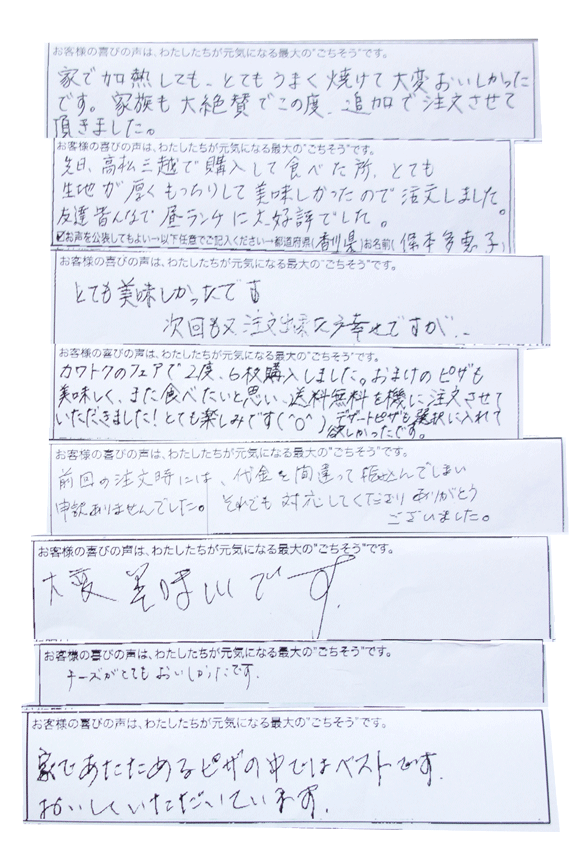 お客様の喜びの声は、わたしたちが元気になる最大の"ごちそう"です。
家で加熱しても、とてもうまく焼けて大変おいしかった
です。家族も大絶賛でこの度、追加で注文させて
頂きました。
お客様の喜びの声は、わたしたちが元気になる最大の"ごちそう"です。
先日、高松三越で購入して食べた所、とても
生地が厚くもっちりして美味しかったので注文しました。
友達皆んなで昼ランチに大好評でした。
お声を公表してもよい→以下任意でご記入ください→都道府県(香川県)お名前(保本多恵子)
お客様の喜びの声は、わたしたちが元気になる最大の"ごちそう"です。
とても美味しかったです
次回も又注文出来たら幸せですが、、
お客様の喜びの声は、わたしたちが元気になる最大の"ごちそう"です。
カワトクのフェアで2度、6枚購入しました。おまけのピザも
美味しく、また食べたいと思い、送料無料を機に注文させて
いただきました!とても楽しみです(^O^)デザートピザも選択に入れて
欲しかったです。
前回の注文時には、代金を間違って振込んでしまい
申訳ありませんでした。それでも対応してくださりありがとう
ございました。
お客様の喜びの声は、わたしたちが元気になる最大の"ごちそう"です。
大変美味しいです。
お客様の喜びの声は、わたしたちが元気になる最大の"ごちそう"です。
チーズがとてもおいしかったです.
お客様の喜びの声は、わたしたちが元気になる最大の"ごちそう"です。
家であたためるピザの中ではベストです.
おいしくいただいています.